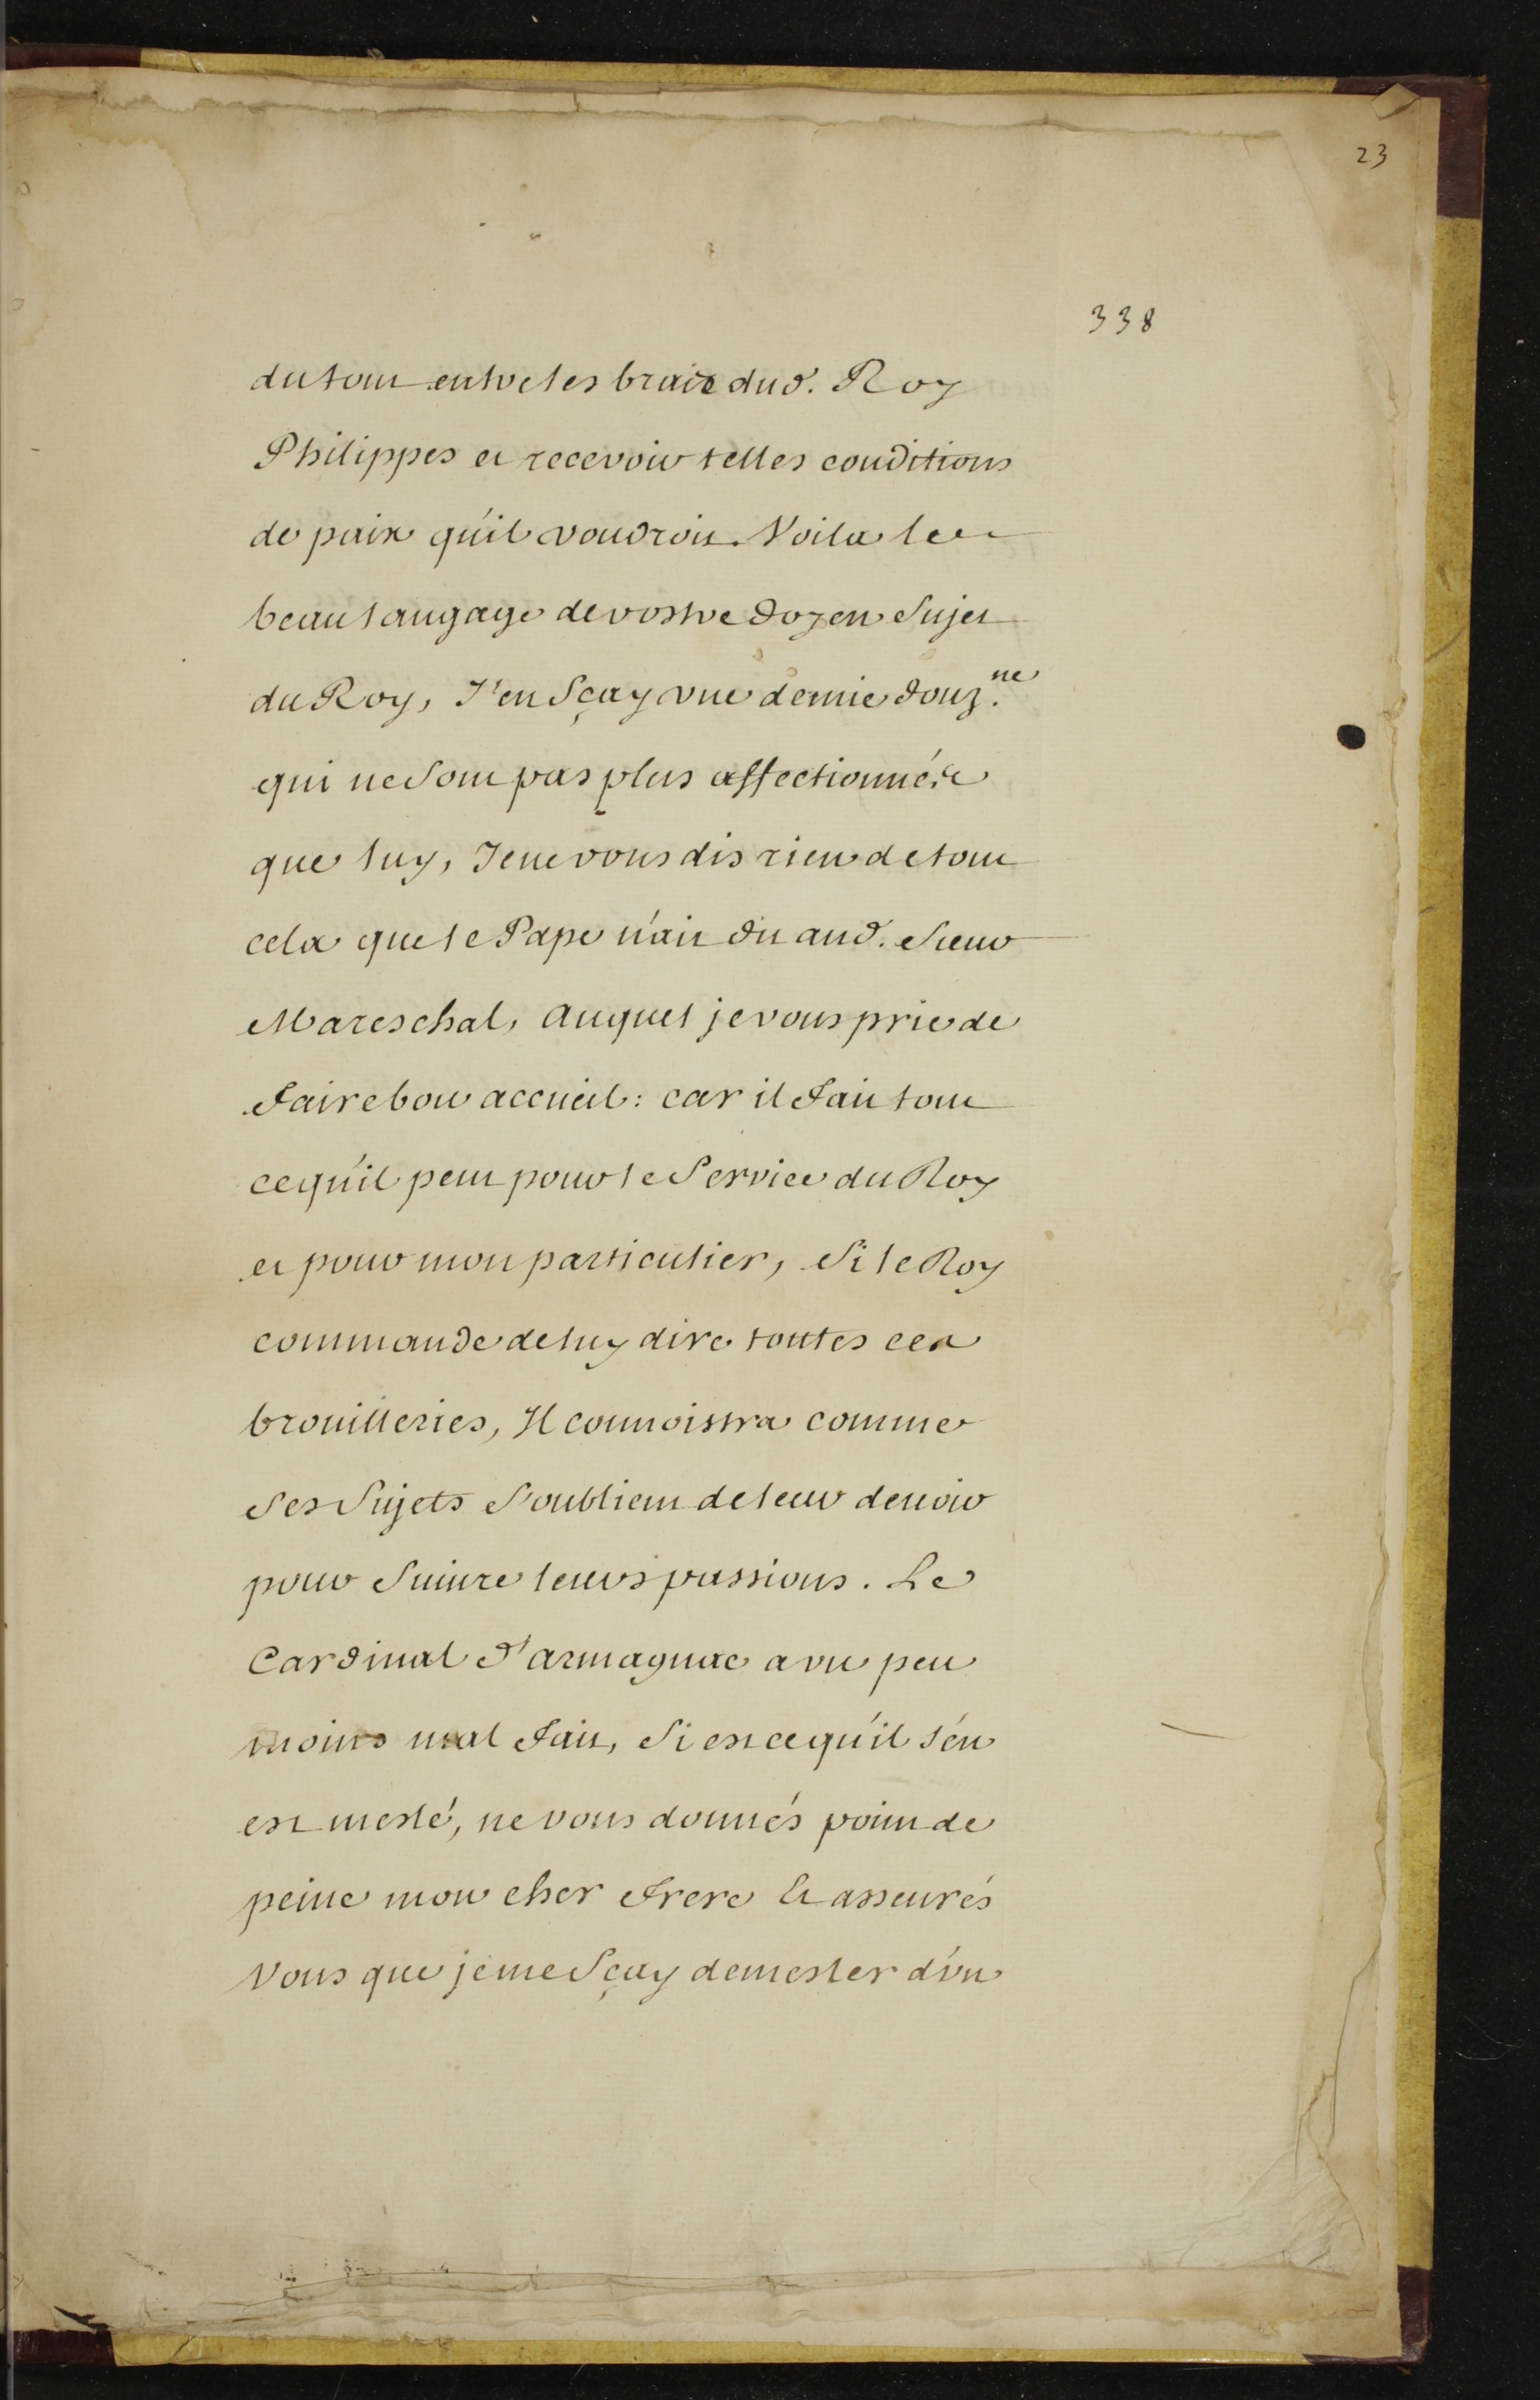 23
338
du tout entre les bras dud. Roy
Philippes et recevoir telles conditions
de paix qu'il voudroit. Voila le
beau langage de vostre doyen Sujet
du Roy, J'en Sçay vne demie douz.ne
qui ne Sont pas plus affectionnés
que luy, Je ne vous dis rien de tout
cela que le Pape n'ait dit aud. Sieur
Mareschal, auquel je vous prie de
faire bon accueil: car il fait tout
ce qu'il peut pour le Service du Roy
et pour mon particulier, Si le Roy
commande de luy dire toutes ces
brouilleries, Il connoistra comme
Ses Sujets S'oublient de leur devoir
pour Suiure leurs passions. Le
Cardinal d'armagnac a vn peu
moins mal fait, Si est ce qu'il s'en
est meslé, ne vous donnés point de
peine mon cher frere Et asseurés
Vous que je me Sçay demesler d'vn